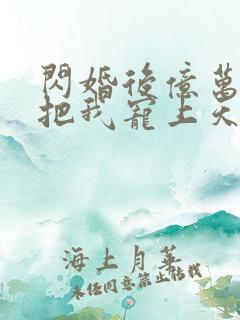 閃婚後億萬
把我寵上天
海上月華
未經同意禁止轉載